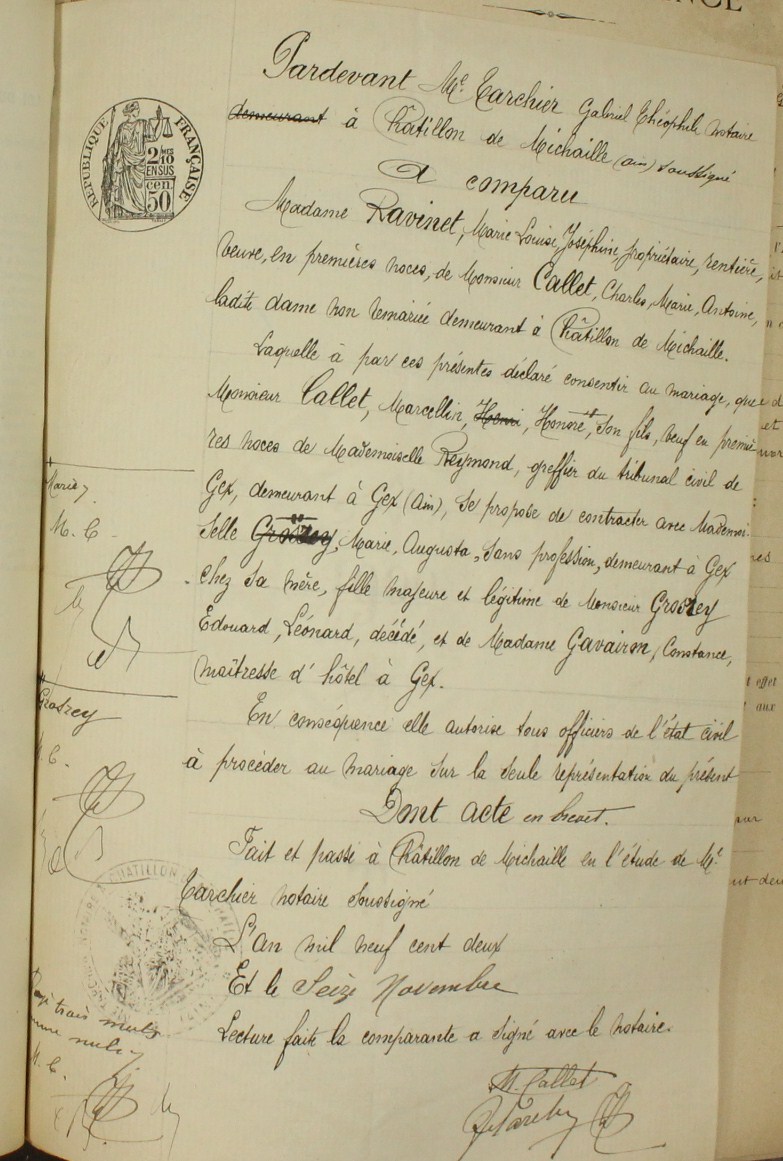 Pardevant Me Tarchier Gabriel Théophile notaire
demeurant à Châtillon de Michaille (Ain) soussigné
A comparu
Madame Ravinet, Marie Louise, Joséphine, propriétaire, rentière,
veuve, en premières noces, de Monsieur Callet, Charles, Marie, Antoine,
ladite dame non remariée demeurant à Châtillon de Michaille.
Laquelle à par ces présentes déclaré consentir au mariage, que
Monsieur Callet, Marcellin, Henri, Honoré, son fils, veuf en premiè-
res noces de Mademoiselle Reymond, greffier du tribunal civil de
Gex, demeurant à Gex (Ain), se propose de contracter avec Mademoi-
selle Marie, Augusta, sans profession, demeurant à Gex
chez sa mère, fille majeure et légitime de Monsieur Grosrey
Edouard, Léonard, décédé, et de Madame Gavairon, Constance,
maîtresse d'hôtel à Gex.
En conséquence elle autorise tous officiers de l'état civil
à procéder au mariage sur la seule représentation du présent
Dont acte en brevet.
Fait et passé à Châtillon de Michaille en l'étude de Me
Tarchier notaire soussigné
L'an mil neuf cent deux
Et le Seize Novembre
Lecture faite la comparante a signé avec le notaire.
M. Callet
Marie
M. C.
Grosrey
M. C.
trois mots
nuls
M. C.
RÉPUBLIQUE FRANÇAISE
2/10 EN SUS
50 cen.
CHATILLON